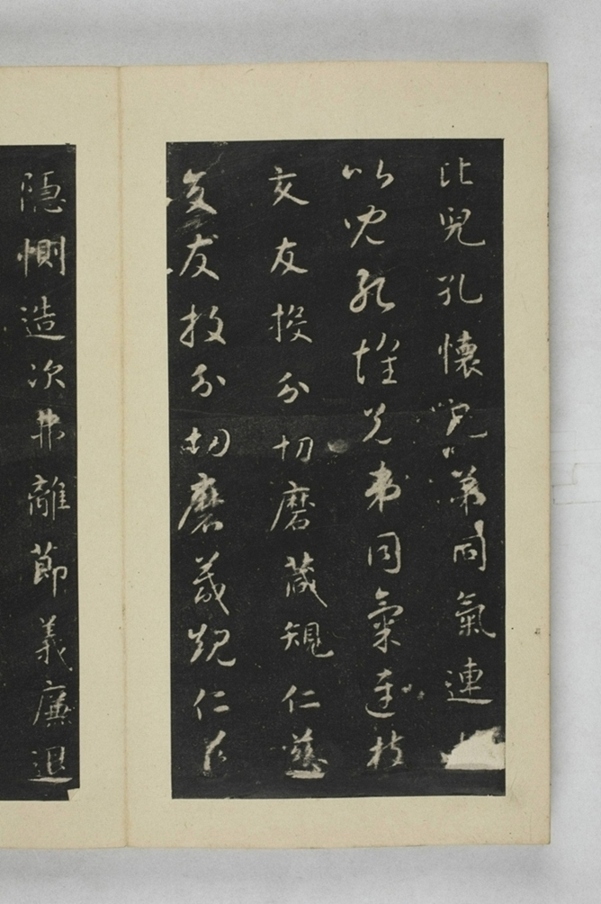 比兒孔懷兄弟同氣連
比兒孔懷兄弟同氣連枝
交友投分切磨箴規仁慈
交友投分切磨箴規仁慈
隱惻造次弗離節義廉退